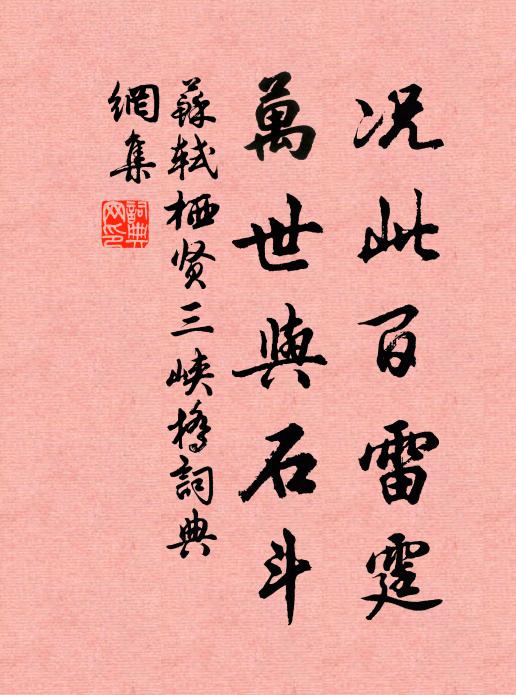 况此百雷霆
萬世與石斗
蘇軾栖贤三峡橋詞典
網集
詞典
网印